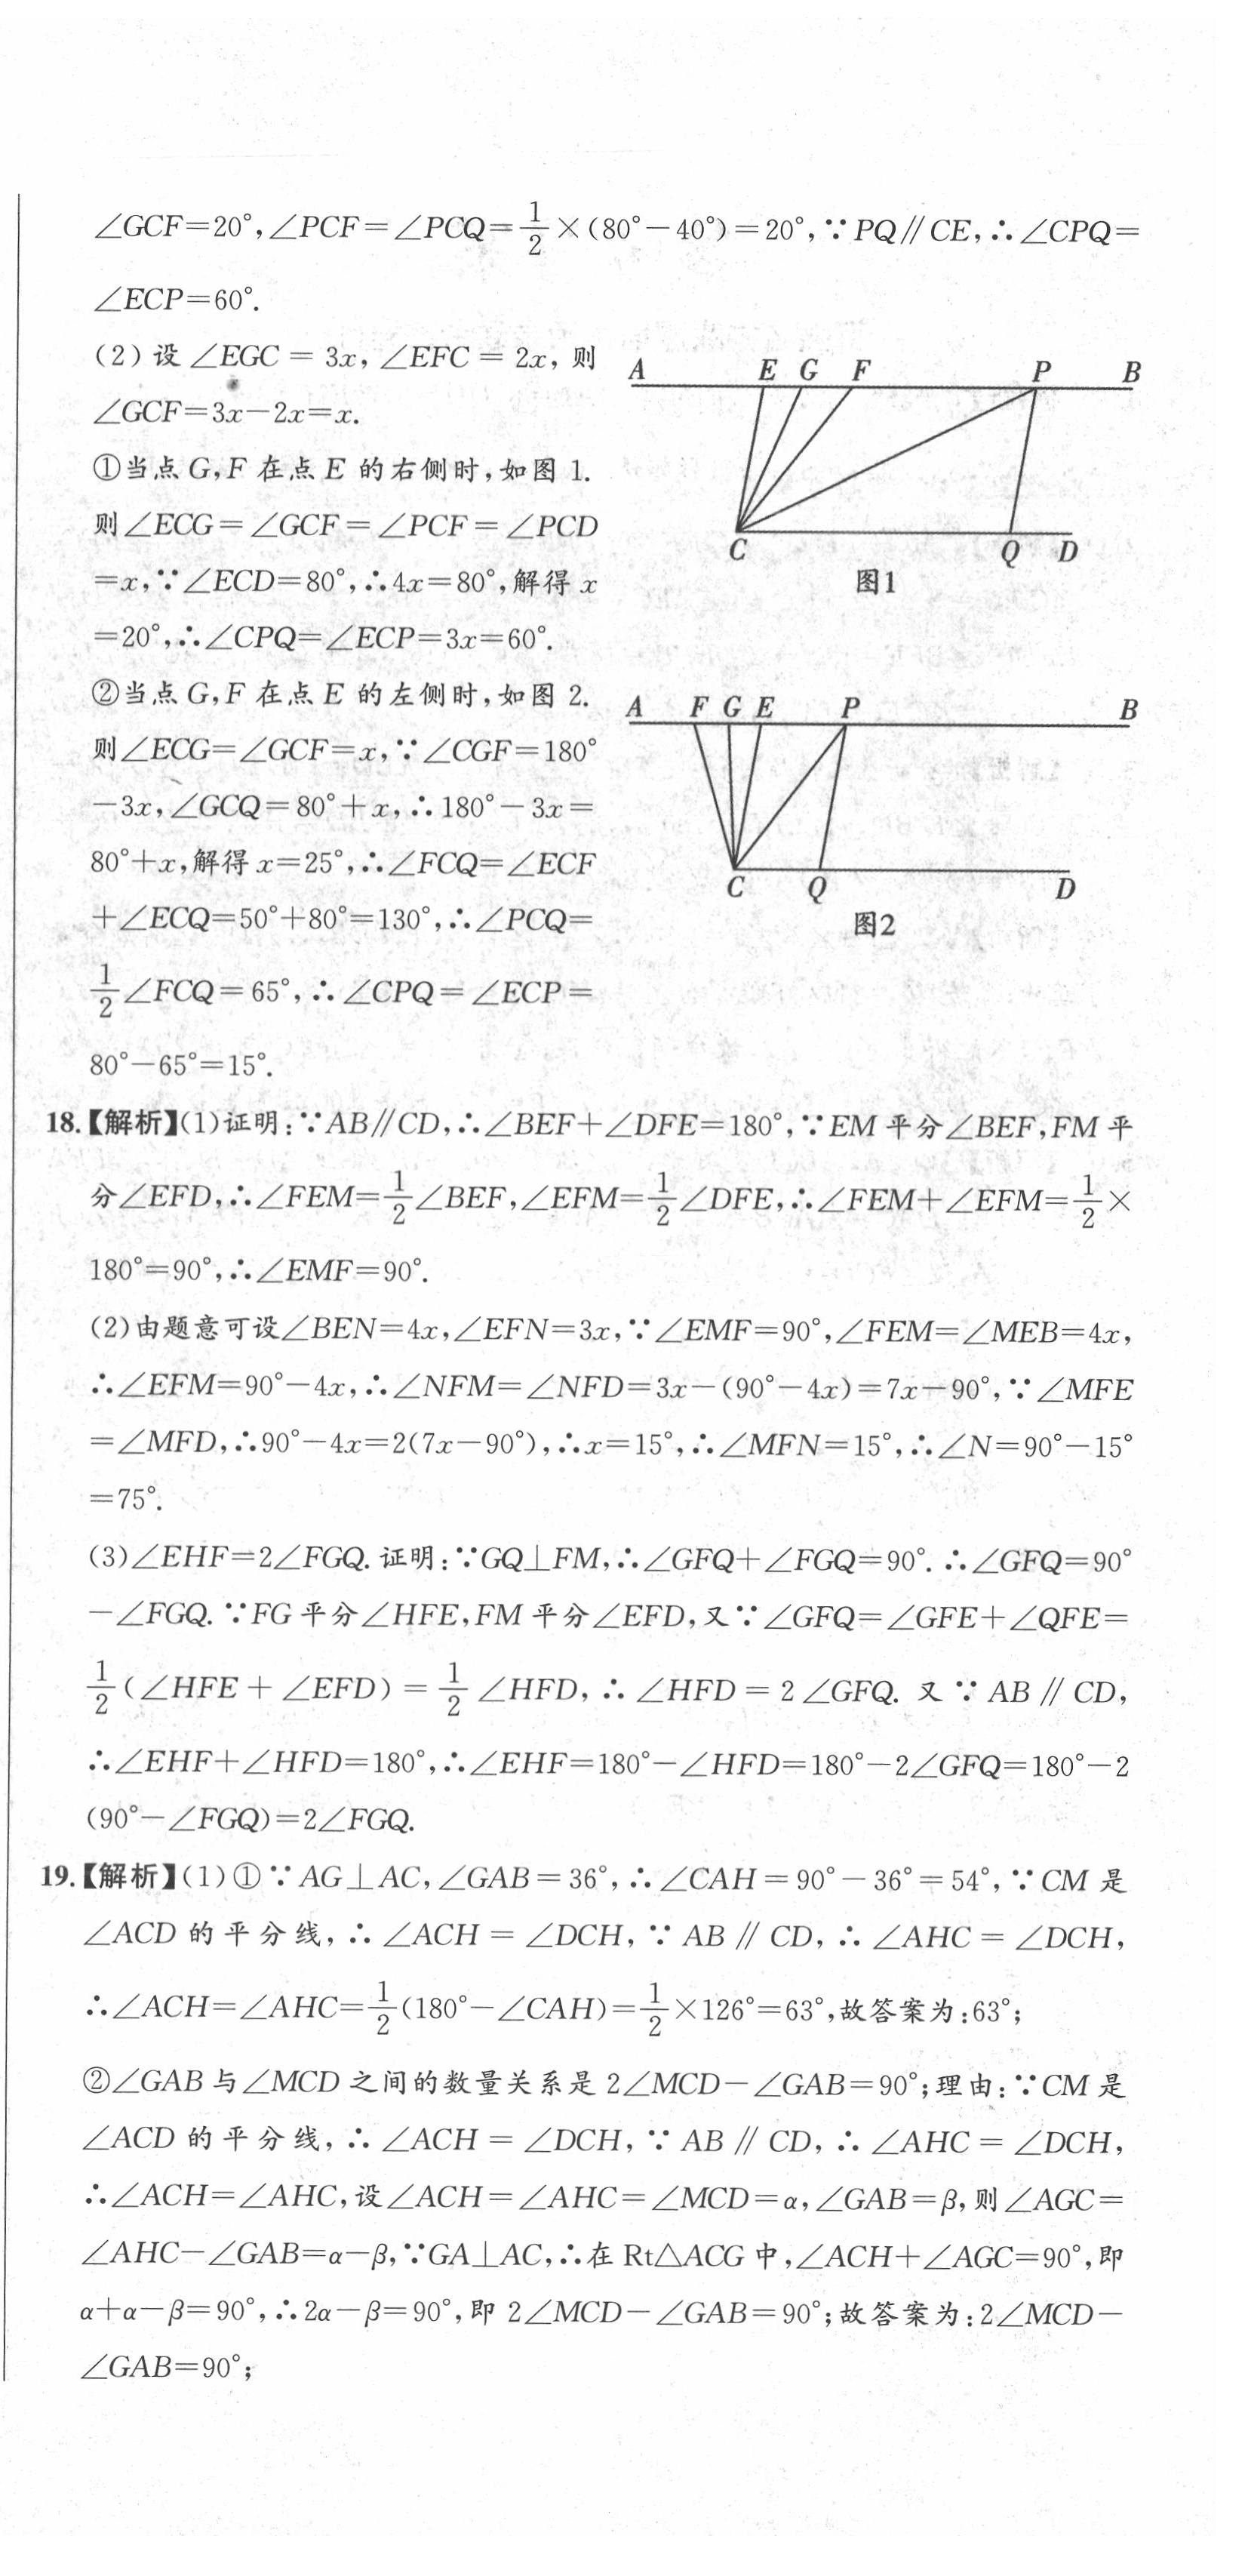 ∠GCF=20°,∠PCF=∠PCQ=1/2×(80°-40°)=20°,∵PQ∥CE,∴∠CPQ=
∠ECP=60°.
(2)设∠EGC=3x,∠EFC=2x,则
∠GCF=3x-2x=x.
①当点G,F在点E的右侧时,如图1.
则∠ECG=∠GCF=∠PCF=∠PCD
=x,∵∠ECD=80°,∴4x=80°,解得x
=20°,∴∠CPQ=∠ECP=3x=60°.
A E G F P B
C Q D
图1
②当点G,F在点E的左侧时,如图2.
则∠ECG=∠GCF=x,∵∠CGF=180°
-3x,∠GCQ=80°+x,∴180°-3x=
80°+x,解得x=25°,∴∠FCQ=∠ECF
+∠ECQ=50°+80°=130°,∴∠PCQ=
1/2∠FCQ=65°,∴∠CPQ=∠ECP=
80°-65°=15°.
A F G E P B
C Q D
图2
18.【解析】(1)证明:∵AB∥CD,∴∠BEF+∠DFE=180°,∵EM平分∠BEF,FM平
分∠EFD,∴∠FEM=1/2∠BEF,∠EFM=1/2∠DFE,∴∠FEM+∠EFM=1/2×
180°=90°,∴∠EMF=90°.
(2)由题意可设∠BEN=4x,∠EFN=3x,∵∠EMF=90°,∠FEM=∠MEB=4x,
∴∠EFM=90°-4x,∴∠NFM=∠NFD=3x-(90°-4x)=7x-90°,∵∠MFE
=∠MFD,∴90°-4x=2(7x-90°),∴x=15°,∴∠MFN=15°,∴∠N=90°-15°
=75°.
(3)∠EHF=2∠FGQ.证明:∵GQ⊥FM,∴∠GFQ+∠FGQ=90°.∴∠GFQ=90°
-∠FGQ.∵FG平分∠HFE,FM平分∠EFD,又∵∠GFQ=∠GFE+∠QFE=
1/2(∠HFE+∠EFD)=1/2∠HFD,∴∠HFD=2∠GFQ.又∵AB∥CD,
∴∠EHF+∠HFD=180°,∴∠EHF=180°-∠HFD=180°-2∠GFQ=180°-2
(90°-∠FGQ)=2∠FGQ.
19.【解析】(1)①∵AG⊥AC,∠GAB=36°,∴∠CAH=90°-36°=54°,∵CM是
∠ACD的平分线,∴∠ACH=∠DCH,∵AB∥CD,∴∠AHC=∠DCH,
∴∠ACH=∠AHC=1/2(180°-∠CAH)=1/2×126°=63°,故答案为:63°;
②∠GAB与∠MCD之间的数量关系是2∠MCD-∠GAB=90°;理由:∵CM是
∠ACD的平分线,∴∠ACH=∠DCH,∵AB∥CD,∴∠AHC=∠DCH,
∴∠ACH=∠AHC,设∠ACH=∠AHC=∠MCD=α,∠GAB=β,则∠AGC=
∠AHC-∠GAB=α-β,∵GA⊥AC,∴在Rt△ACG中,∠ACH+∠AGC=90°,即
α+α-β=90°,∴2α-β=90°,即2∠MCD-∠GAB=90°;故答案为:2∠MCD-
∠GAB=90°;